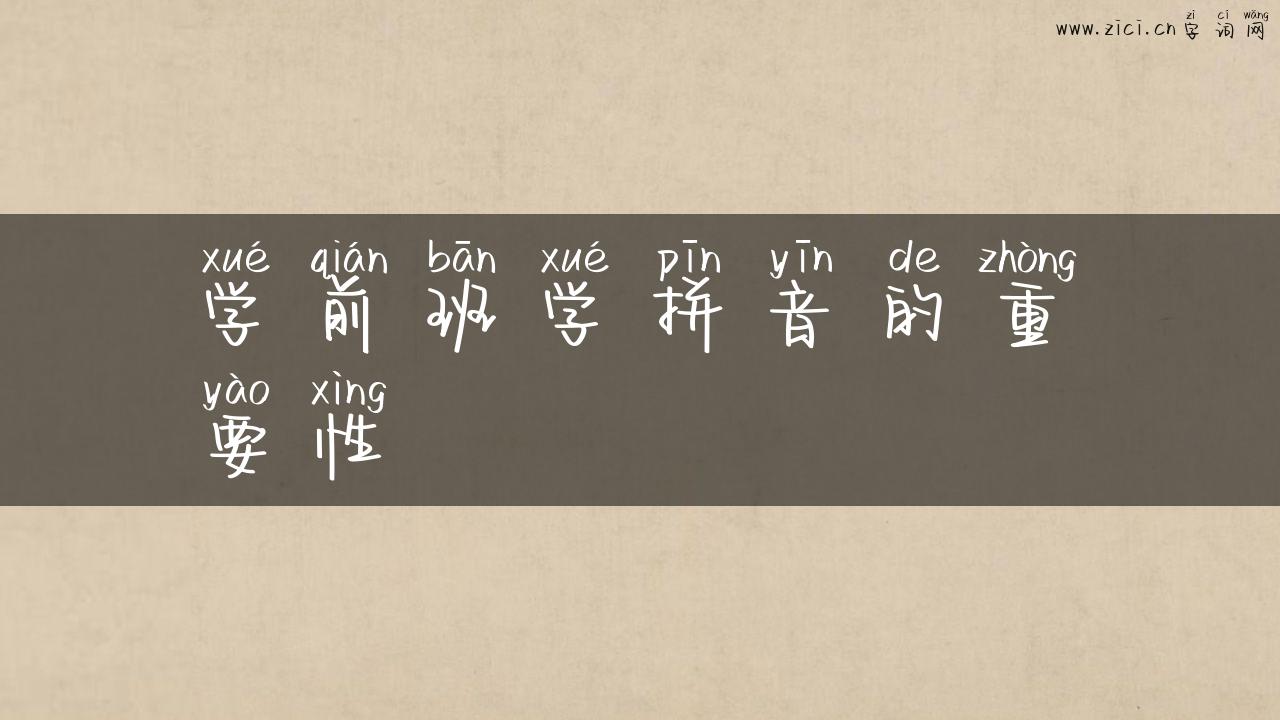 zì cí wǎng
www.zici.cn 字词网
xué qián bān xué pīn yīn de zhòng
学前班学拼音的重
yào xìng
要性